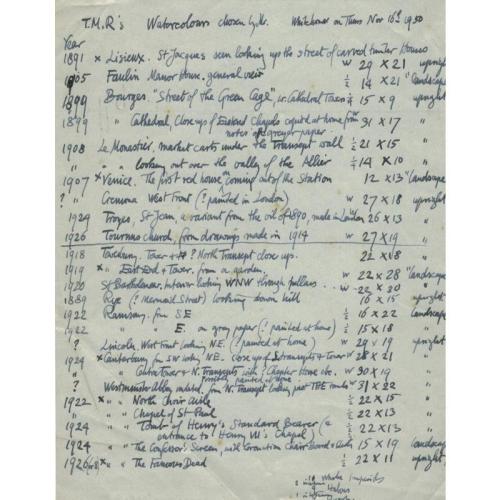 T.M.R's Watercolours chosen by Mr. Whitehouse on Thurs Nov 16th 1950
Year
1891 x Lisieux. St Jacques seen looking up the street of carved timber Houses w 29 x 21 upright
1905 Manor House. general view ½ 14 x 21 "landscape
1899 Bourges "Street of the Green Cage", w. Cathedral Towers ½ 15 x 9 upright
1899 " Cathedral, Close up of chapels copied at home from 31 x 17 "
notes on greyer paper
1908 Le Monastier, market carts under the Transept wall ½ 21 x 15 "
" " looking out over the valley of the Allier ½ 14 x 10 "
1907 x Venice. The first red house coming out of the Station 12 x 13 "landscape
? " Cremona West Front (? painted in London) w 27 x 18 upright
1924 Troyes. St Jean, a variant from the oil of 1890, made in London 26 x 13 "
1926 Tournus church, from drawings made in 1914 w 27 x 19 "
1918 Tewkesbury. Tower & ? North Transept close up. 22 x 18 "
1919 x " East End & Tower. from a garden. w 22 x 28 "landscape
1920 St Bartholomew. Interior looking WNW through pillars w 22 x 30 "
1889 Rye (? Mermaid Street) looking down hill 16 x 15 upright
1922 Ramsay. from SE ½ 16 x 22 landscape
1922 " E. on grey paper (? painted at home) ½ 15 x 18 "
? Lincoln. West front looking N.E. (? painted at home) w 29 x 19 upright
1924 x Canterbury from SW looking N.E. close up of S transepts & Tower w 28 x 21 "
" " Tower & N. Transepts with ? Chapter House etc. w 30 x 19 "
possibly painted at home
? Westminster Abbey from N. Transept looking past THE tombs w 31 x 22 "
1922 x " " North Choir Aisle ½ 22 x 15 "
" " Chapel of St Paul ½ 22 x 13 "
1924 " " Tomb of Henry's Standard Bearer (& ½ 22 x 13 "
entrance to Henry VII's Chapel)
1924 " " The Confessor's Screen, with Coronation Chair Sword & 15 x 19 landscape
1926(?) x " " The Famous Dead ½ 22 x 11 upright
Whole Imperials
Halves